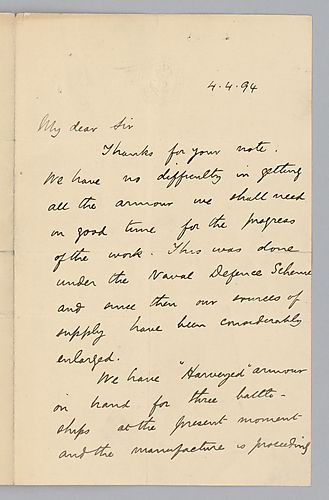 4.4.94
My dear Sir
Thanks for your note.
We have no difficulty in getting
all the armour we shall need
in good time for the progress
of the work. This was done
under the Naval Defence Scheme
and since then our sources of
supply have been considerably
enlarged.
We have "Harveyed" armour
in hand for three battle-
ships at the present moment
and the manufacture is proceeding